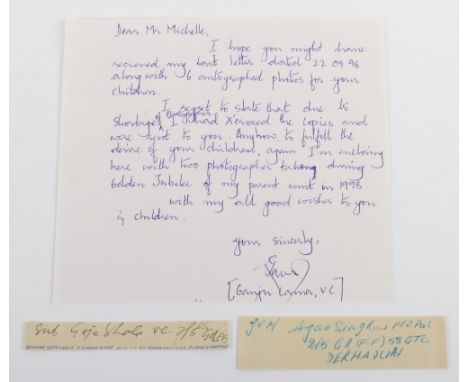 Dear Mr Michelle,
I hope you might have
recieved my last letter dated 22 09 98
along with 6 autographed photos for your
children.
I regret to state that due to
Shortage of Photographs I had Xeroxed the copies and
were sent to you. Anyhow, to fulfill the
desire of your children, again I'm enclosing
here with two photographs taking during
Golden Jubilee of my parent unit in 1998.
with my all good wishes to you
& children.
your sincerely,
[Ganju Lama, VC]
Sub Gaje Ghale VC 2/5 GR FF
JEM Agansing Rai
2/5 GR (FF) 58 GTC
DERHADUN